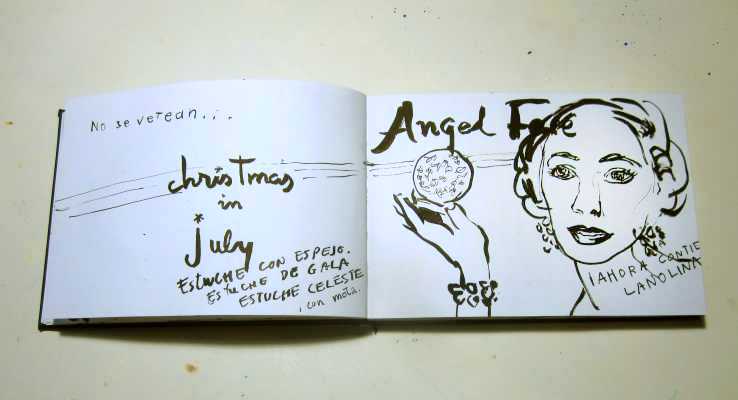 No se verean...
christmas
in
july
ESTUCHE CON ESPEJO.
ESTUCHE DE GALA
ESTUCHE CELESTE
, con mota.
Angel Face
¡AHORA CONTIE
LANOLINA